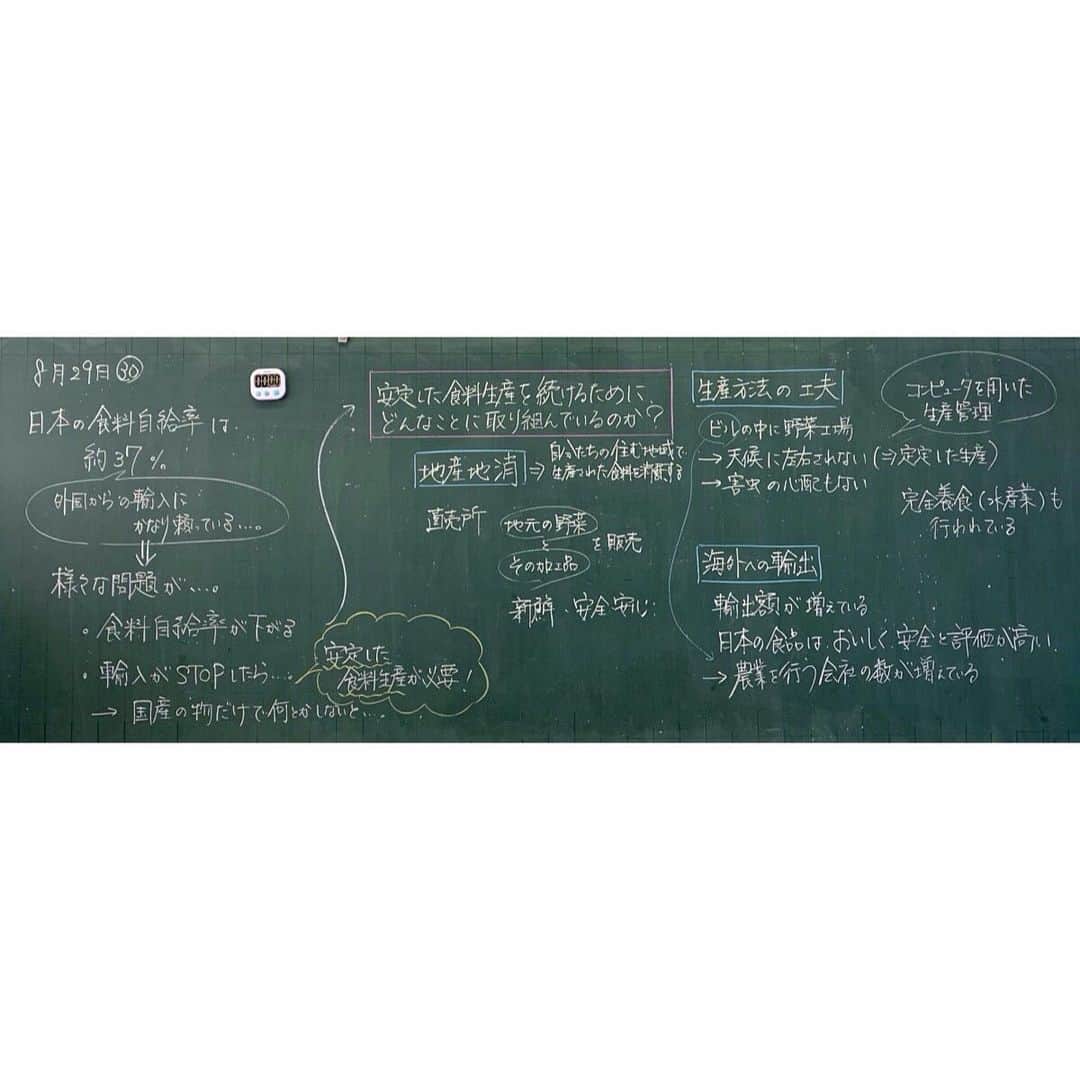 8月29日 ㉚
00:00
日本の食料自給率は
約37%
外国からの輸入に
かなり頼っている….
様々な問題が….
。食料自給率が下がる
・輸入がSTOPしたら….
→国産の物だけで何とかしないと….
安定した
食料生産が必要!
安定した食料生産を続けるために、
どんなことに取り組んでいるのか?
地産地消 ⇒ 自分たちの住む地域で
生産された食料を消費する
直売所
地元の野菜
と
その加工品
を販売
新鮮・安全安心
生産方法の工夫
ビルの中に野菜工場
→天候に左右されない(⇒安定した生産)
→害虫の心配もない
コンピュータを用いた
生産管理
完全養食(水産業)も
行われている
海外への輸出
輸出額が増えている
日本の食品は、おいしく、安全と評価が高い
→農業を行う会社の数が増えている